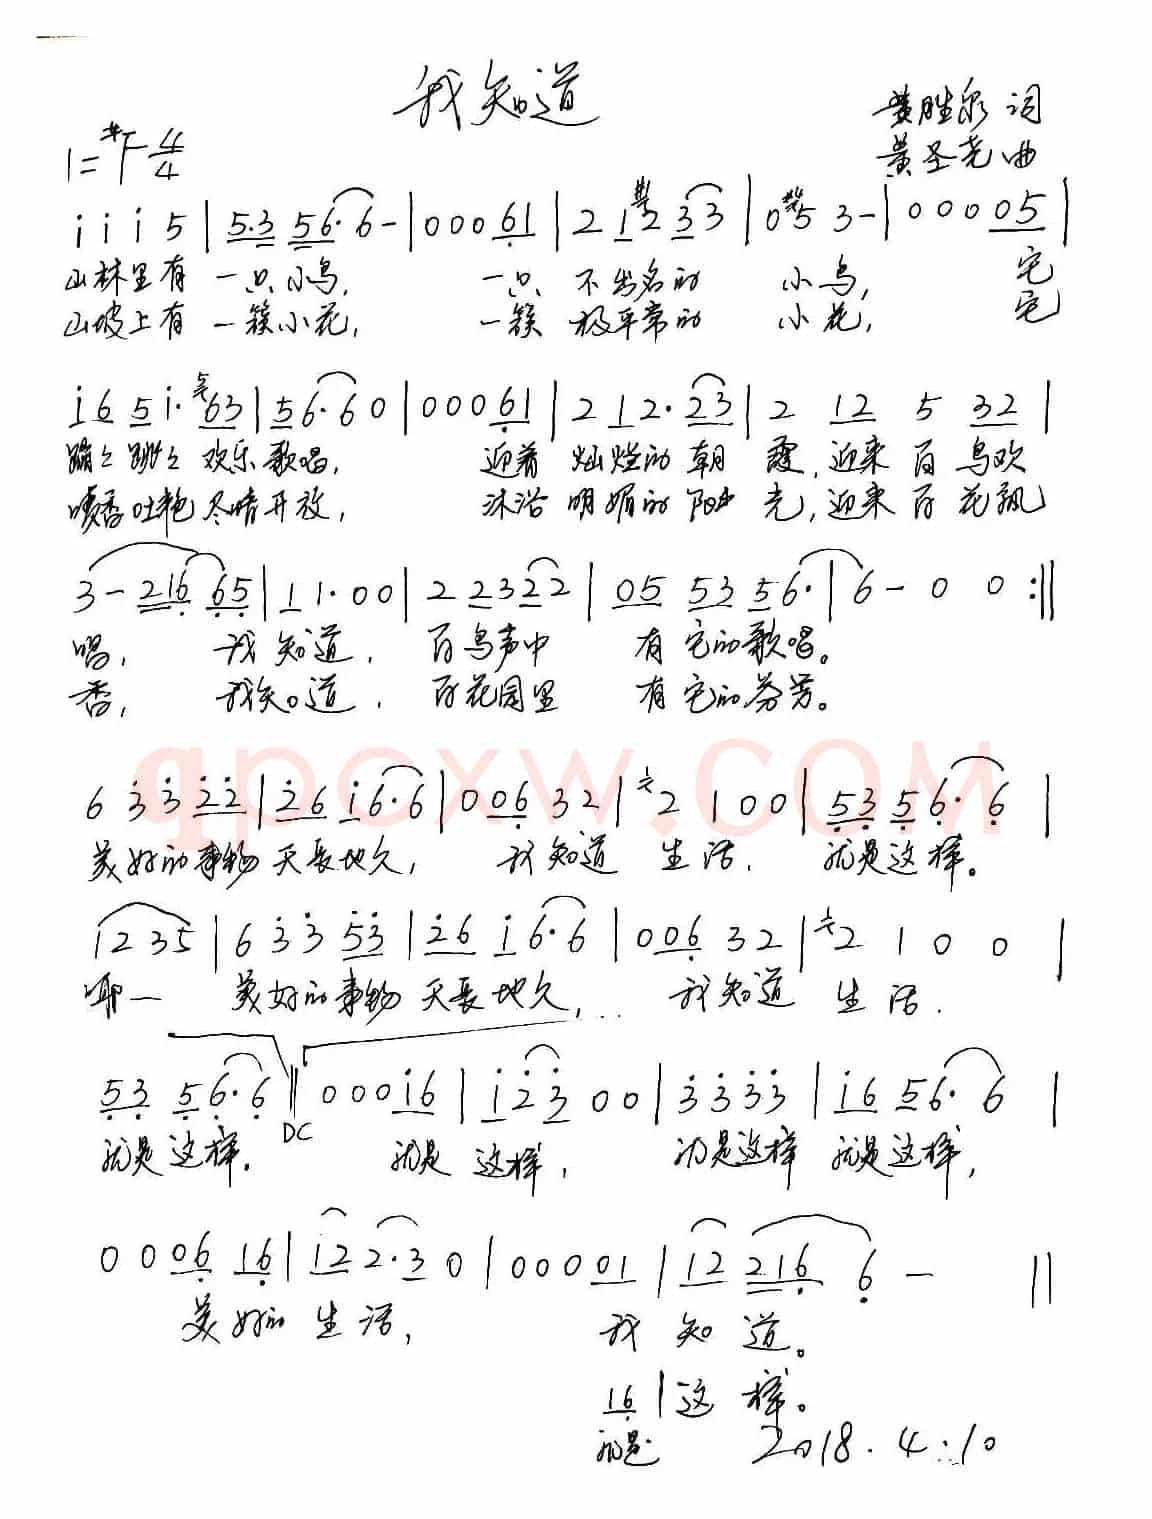 我知道
黄胜泉 词
1=#F 4/4
黄圣尧 曲
i i i 5 | 5·3 56·6 - | 0 0 0 61 | 2 12 33 | 0 5 3 - | 0 0 0 05 |
山林里有 一只小鸟, 一只 不出名的 小鸟, 它
山坡上有 一簇小花, 一簇 极平常的 小花, 它
i 6 5 i· 63 | 56·6 0 | 0 0 0 61 | 2 12·23 | 2 12 5 32 |
蹦々跳々 欢乐歌唱, 迎着 灿烂的朝 霞,迎来 百鸟欢
喷香吐艳 尽情开放, 沐浴 明媚的阳 光,迎来 百花飘
3 - 216 65 | 1 1· 0 0 | 2 2322 | 05 53 56· | 6 - 0 0 :||
唱, 我知道, 百鸟声中 有它的歌唱。
香, 我知道, 百花园里 有它的芬芳。
qpoxw.com
6 3 3 22 | 26 i6·6 | 0 06 32 | 2 1 0 0 | 53 56·6 |
美好的事物 天长地久, 我知道 生活, 就是这样。
1235 | 6 3 3 53 | 26 i 6·6 | 0 06 32 | 2 1 0 0 |
耶— 美好的事物 天长地久, 我知道 生活.
53 56·6 || 0 0 0 i6 | i 2 3 0 0 | 3 3 3 3 | i6 56· 6 |
DC
就是这样。 就是 这样, 就是这样 就是这样,
0 0 06 16 | 12 2·3 0 | 0 0 0 01 | 12 216 6 - ||
美好的 生活, 我 知 道。
16 | 这 样。
就是
2018.4.10